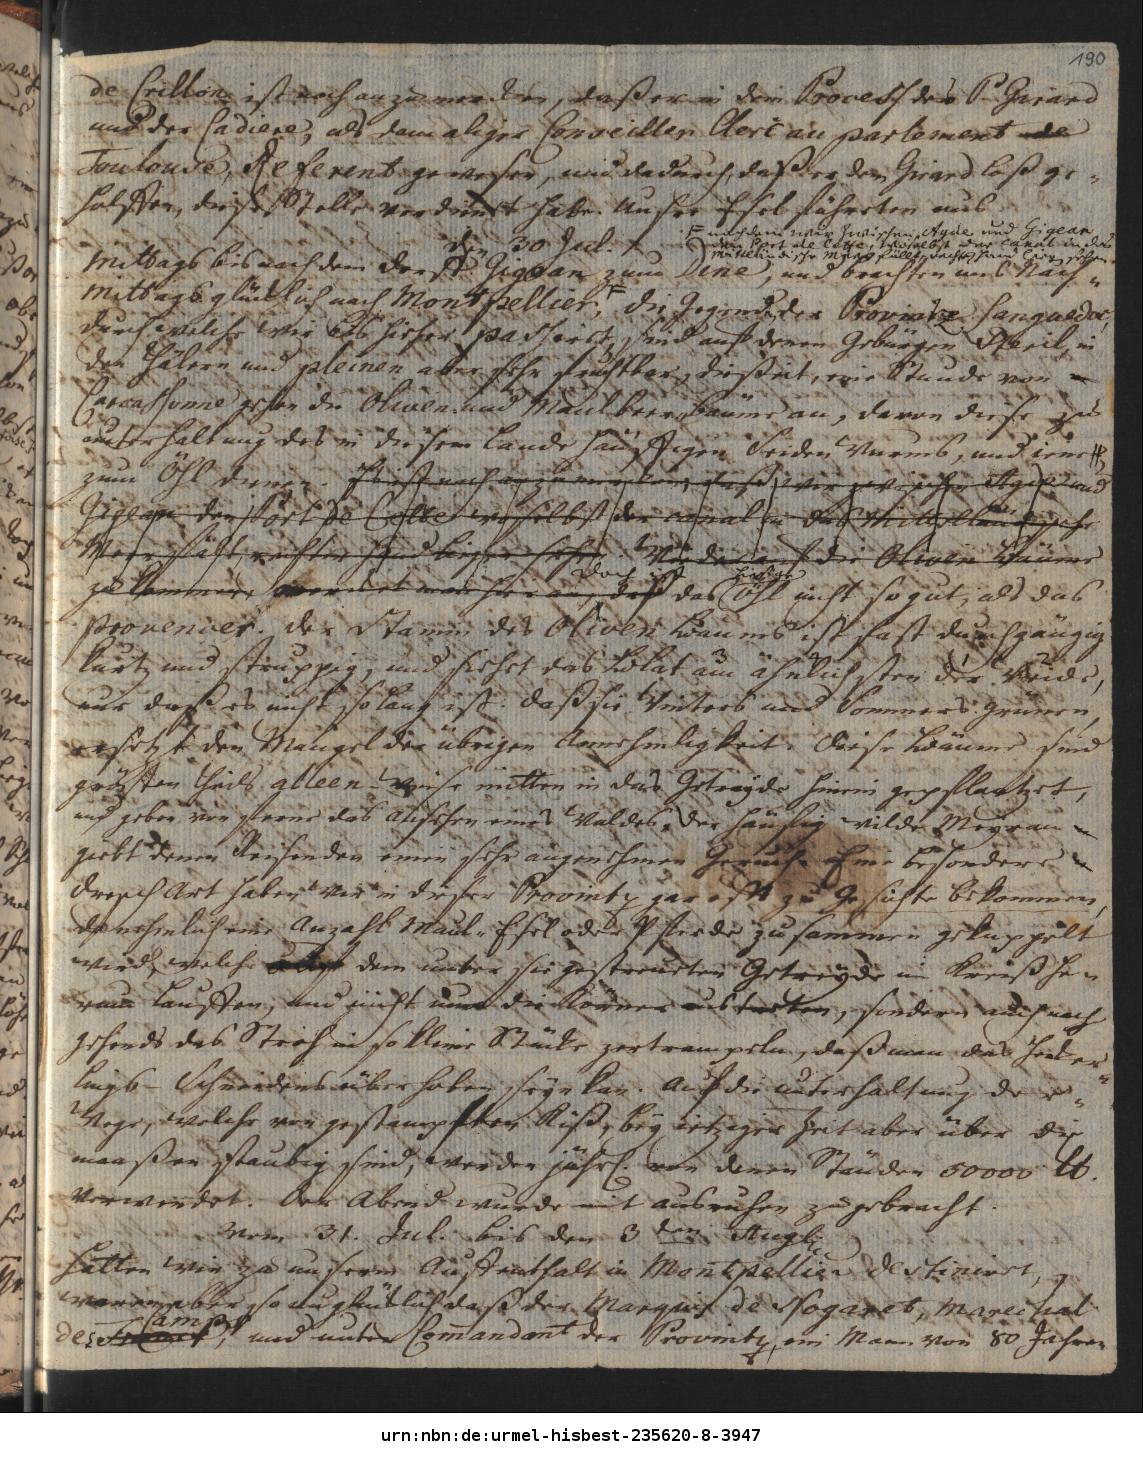 190
de Crillon ist noch anzumerken, daß er in dem Process des P. Girard
und der Cadiere, als damaliger Conseiller Clerc au parlement de
Toulouse, Referent gewesen, und dadurch, daß er den Girard loß ge-
holffen, diese Stelle verdienet habe. Unsere Esel führten uns
den 30 Jul.
F nachdem wir zwischen Agde und Gigean
den Port de Cette, woselbst der canal in das
Mittelländische Meer fällt, rechter Hand liegen sehen
Mittags bis nach dem Dorff Gigean zum Dine, und brachten uns Nach-
mittags glücklich nach Montpellier, F die Gegend der Provintz Languedoc,
durch welche wir bis hieher passiret, sind auf denen Gebürgen steril, in
den Thälern und pleinen aber sehr fruchtbar, dießeit, eine Stunde von
Carcassonne gehen die Oliven und Maulbeer Bäume an, davon diese zu
unterhaltung des in diesem Lande häuffigen Seiden Wurms, und jene
zum Öhl dienen. Es ist noch anzumerken, daß wir zwischen Agde und
Gigean den Port de Cette woselbst der canal in das Mittelländische
Meer fällt, rechter Hand liegen sehen. Wieder auf die Oliven Bäume
zu kommen, doch ist das hiesige Öhl nicht so gut, als das
provencer. Der Stamm des Oliven Baums ist fast durchgängig
kurtz und struppig, und siehet das Blat am ähnlichsten der Weide,
nur daß es nicht so lang ist. Daß sie Winters und Sommers grünen,
ersetzet den Mangel der übrigen Annehmligkeit. Diese Bäume sind
grösten theils alleen-weise mitten in das Getreyde hinein gepflantzet,
und geben von ferne das Ansehen eines Waldes, der häufig wilde Meyran
giebt denen Reisenden einen sehr angenehmen Geruch. Eine besondere
Dresch Art haben wir in dieser Provintz gar offt zu Gesichte bekommen,
da nehmlich eine Anzahl Maul-Esel oder Pferde zusammen gekuppelt
wird, welche dem unter sie gestreueten Getreyde im Kreiß her-
rum lauffen, und nicht nur die Körner austreten, sondern auch nach-
gehends das Stroh in so kleine Stücke zertrampeln, daß man des Heckers-
lings-Schneidens überhoben seyn kan. Auf die unterhaltung derer
Wege, welche von gestampften Kieß, bey jetziger Zeit aber über die
maaßen staubig sind, werden jährl. von denen Ständen 50000 lt.
verwendet. Der Abend wurde mit ausruhen zugebracht.
Vom 31. Jul. bis den 3ten Aug.
hatten wir zu unserm Auffenthalt in Montpellier destiniret,
waren aber so unglücklich daß der Marquis de Nogaret, Marechal
des Camps, und unter Comandant der Provintz, ein Mann von 80 Jahren
urn:nbn:de:urmel-hisbest-235620-8-3947